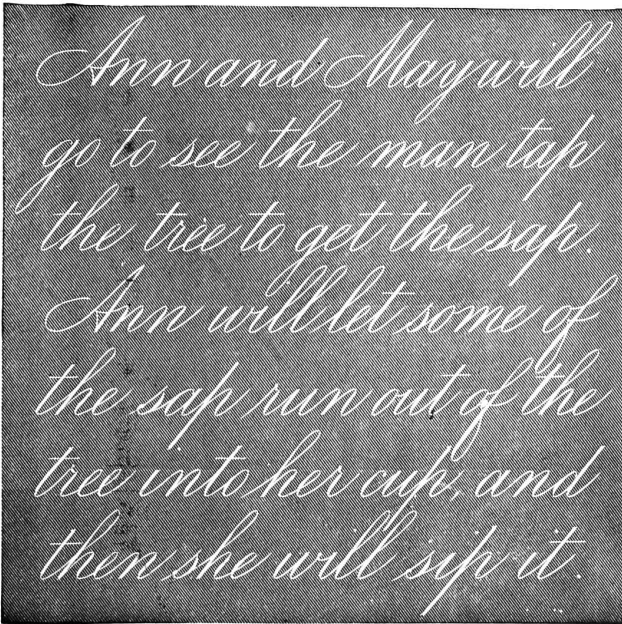 Ann and May will
go to see the man tap
the tree to get the sap.
Ann will let some of
the sap run out of the
tree into her cup, and
then she will sip it.